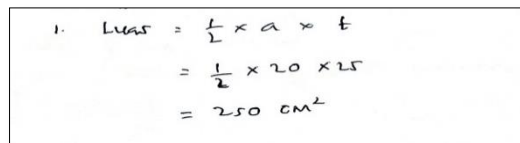 1. Luas = 1/2 × a × t
= 1/2 × 20 × 25
= 250 cm²